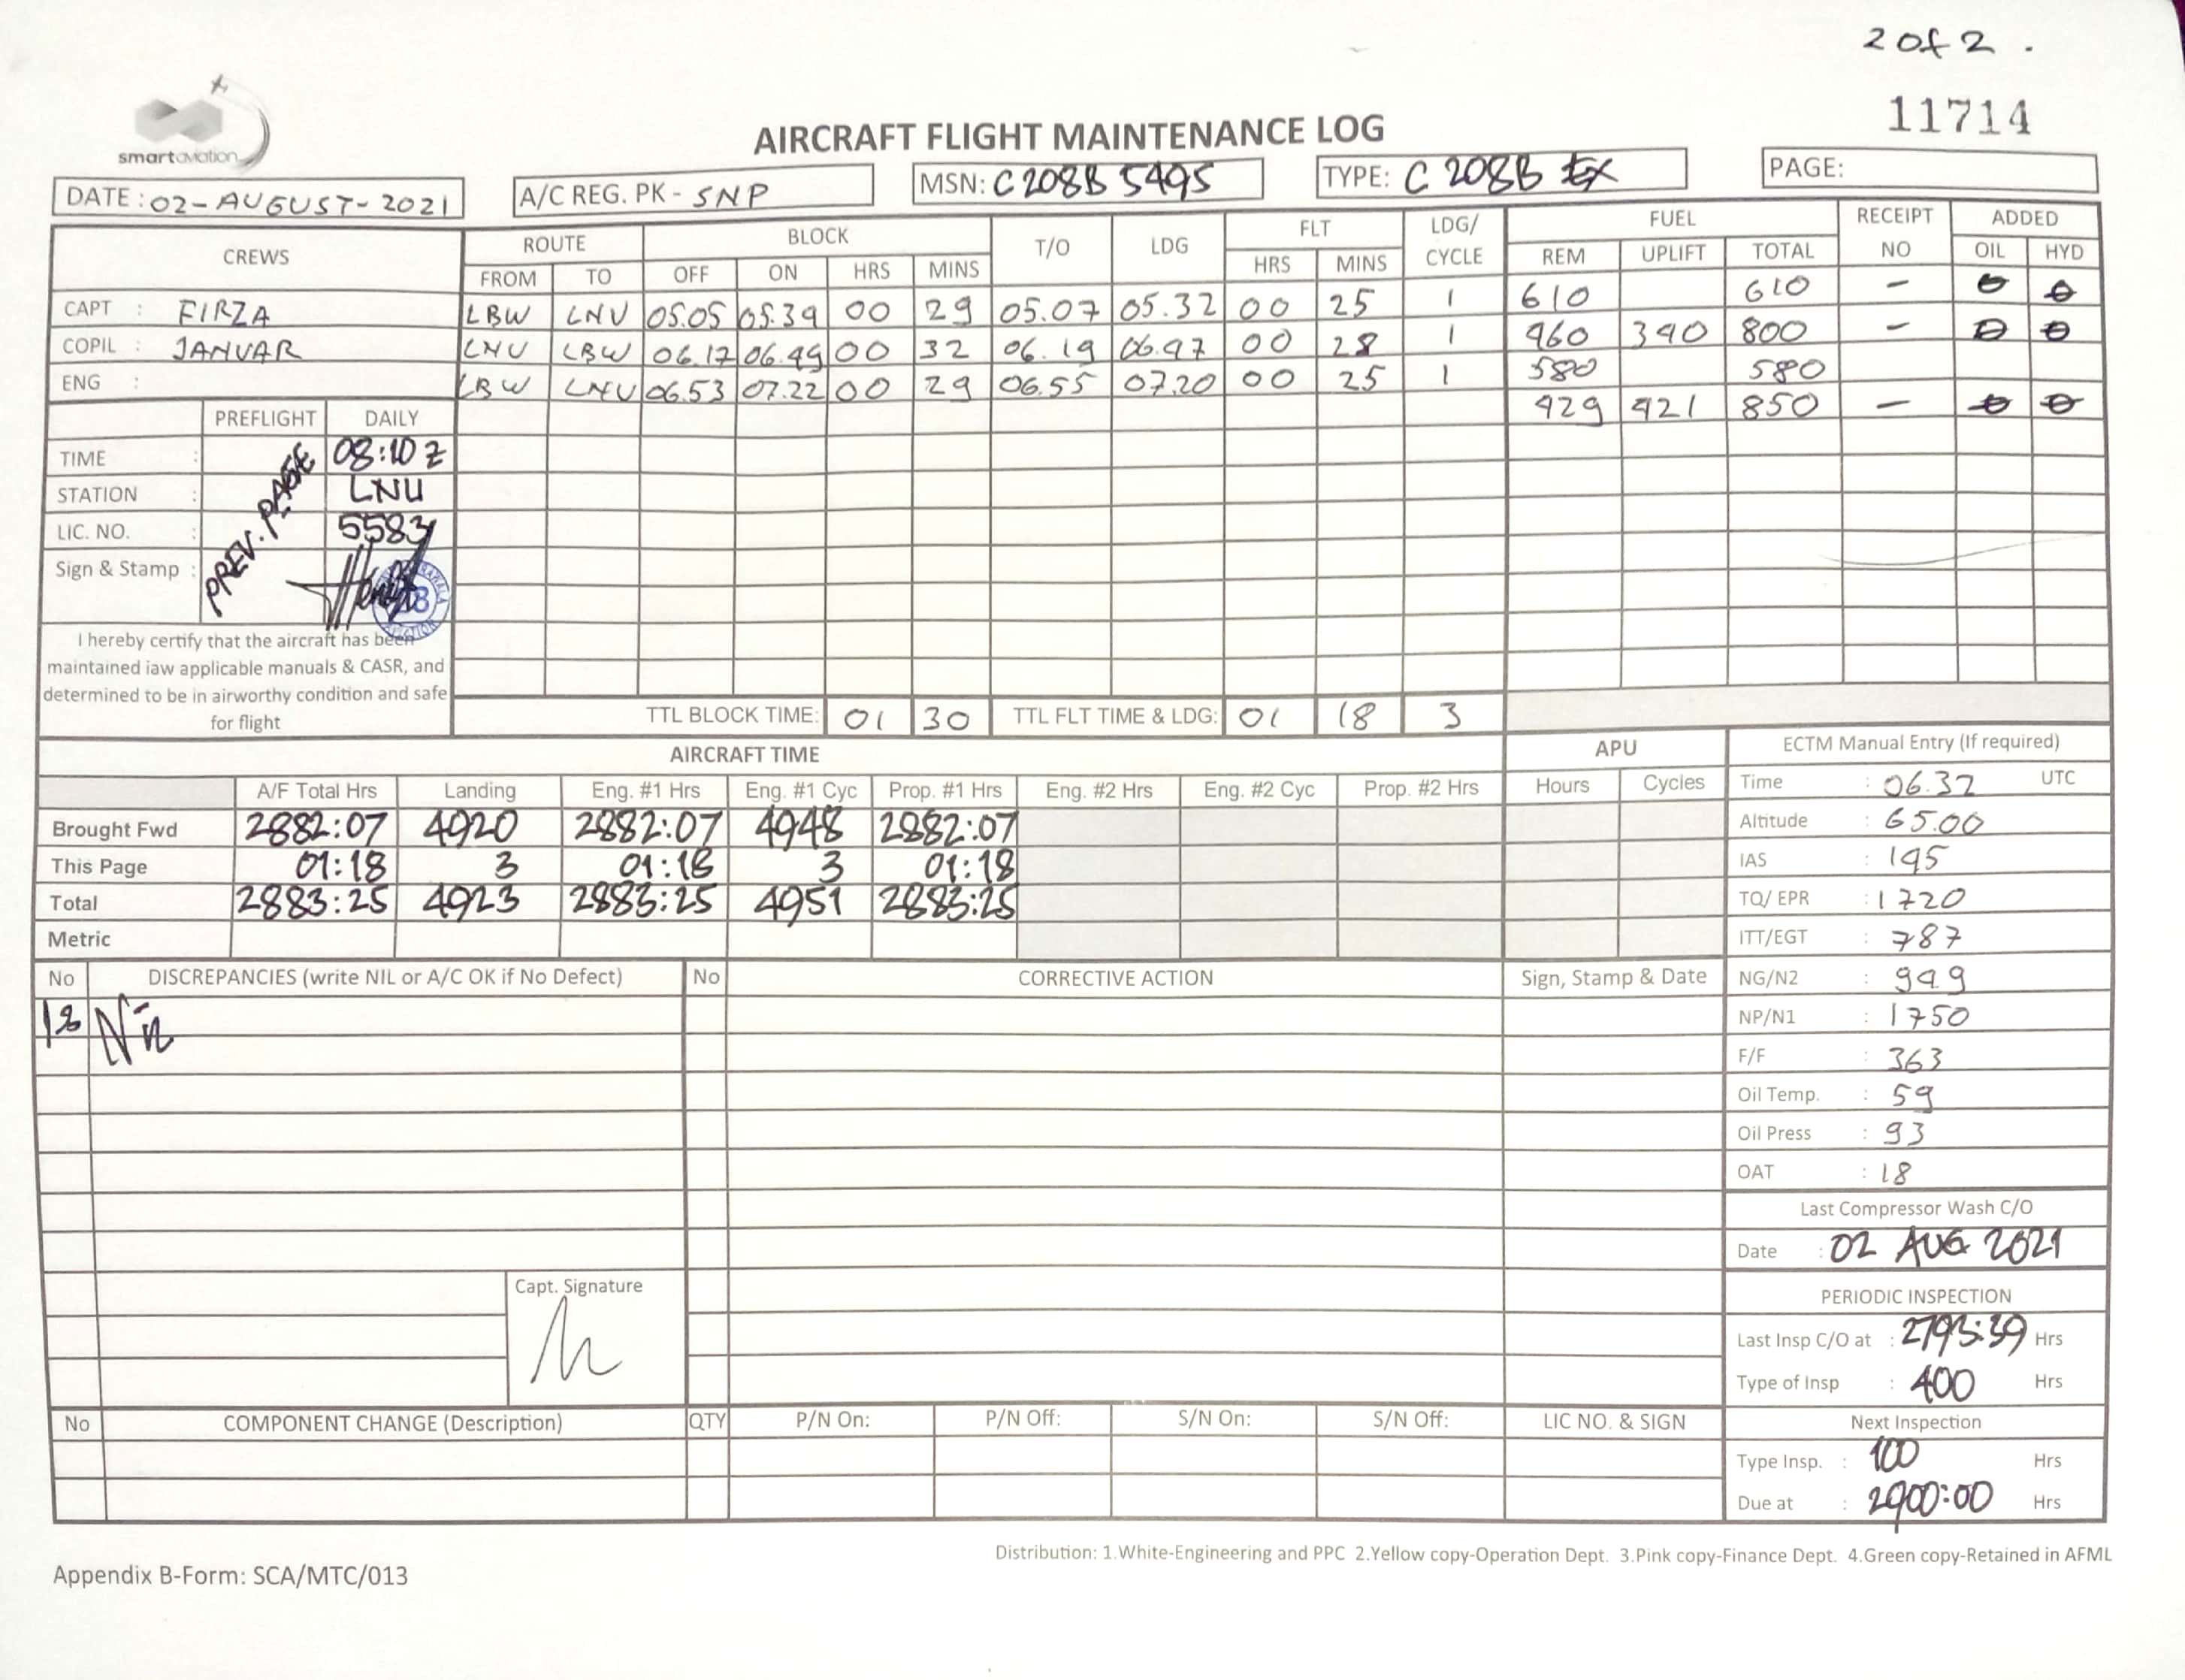 2 of 2 .
11714
smartaviation
AIRCRAFT FLIGHT MAINTENANCE LOG
DATE : 02-AUGUST-2021 A/C REG. PK - SNP MSN: C208B 5495 TYPE: C 208B EX PAGE:
CREWS ROUTE BLOCK T/O LDG FLT LDG/ CYCLE FUEL RECEIPT NO ADDED
FROM TO OFF ON HRS MINS HRS MINS REM UPLIFT TOTAL OIL HYD
CAPT : FIRZA LBW LNU 05.05 05.34 00 29 05.07 05.32 00 25 1 610 610 - 0 0
COPIL : JANUAR LNU LBW 06.17 06.49 00 32 06.19 06.47 00 28 1 460 340 800 - 0 0
ENG : LBW LNU 06.53 07.22 00 29 06.55 07.20 00 25 1 580 580
429 421 850 - 0 0
PREFLIGHT DAILY
TIME : 08:10 Z
STATION : LNU
LIC. NO. : 5583
Sign & Stamp :
PREV. PAGE
I hereby certify that the aircraft has been
maintained iaw applicable manuals & CASR, and
determined to be in airworthy condition and safe
for flight
TTL BLOCK TIME: 01 30 TTL FLT TIME & LDG: 01 18 3
AIRCRAFT TIME APU ECTM Manual Entry (If required)
A/F Total Hrs Landing Eng. #1 Hrs Eng. #1 Cyc Prop. #1 Hrs Eng. #2 Hrs Eng. #2 Cyc Prop. #2 Hrs Hours Cycles
Brought Fwd 2882:07 4920 2882:07 4948 2882:07
This Page 01:18 3 01:18 3 01:18
Total 2883:25 4923 2883:25 4951 2883:25
Metric
Time : 06.32 UTC
Altitude : 65.00
IAS : 145
TQ/ EPR : 1720
ITT/EGT : 787
NG/N2 : 99.9
NP/N1 : 1750
F/F : 363
Oil Temp. : 59
Oil Press : 93
OAT : 18
Last Compressor Wash C/O
Date : 02 AUG 2021
PERIODIC INSPECTION
Last Insp C/O at : 2793:39 Hrs
Type of Insp : 400 Hrs
Next Inspection
Type Insp. : 100 Hrs
Due at : 2900:00 Hrs
No DISCREPANCIES (write NIL or A/C OK if No Defect) No CORRECTIVE ACTION Sign, Stamp & Date
Nil
Capt. Signature
No COMPONENT CHANGE (Description) QTY P/N On: P/N Off: S/N On: S/N Off: LIC NO. & SIGN
Distribution: 1.White-Engineering and PPC 2.Yellow copy-Operation Dept. 3.Pink copy-Finance Dept. 4.Green copy-Retained in AFML
Appendix B-Form: SCA/MTC/013